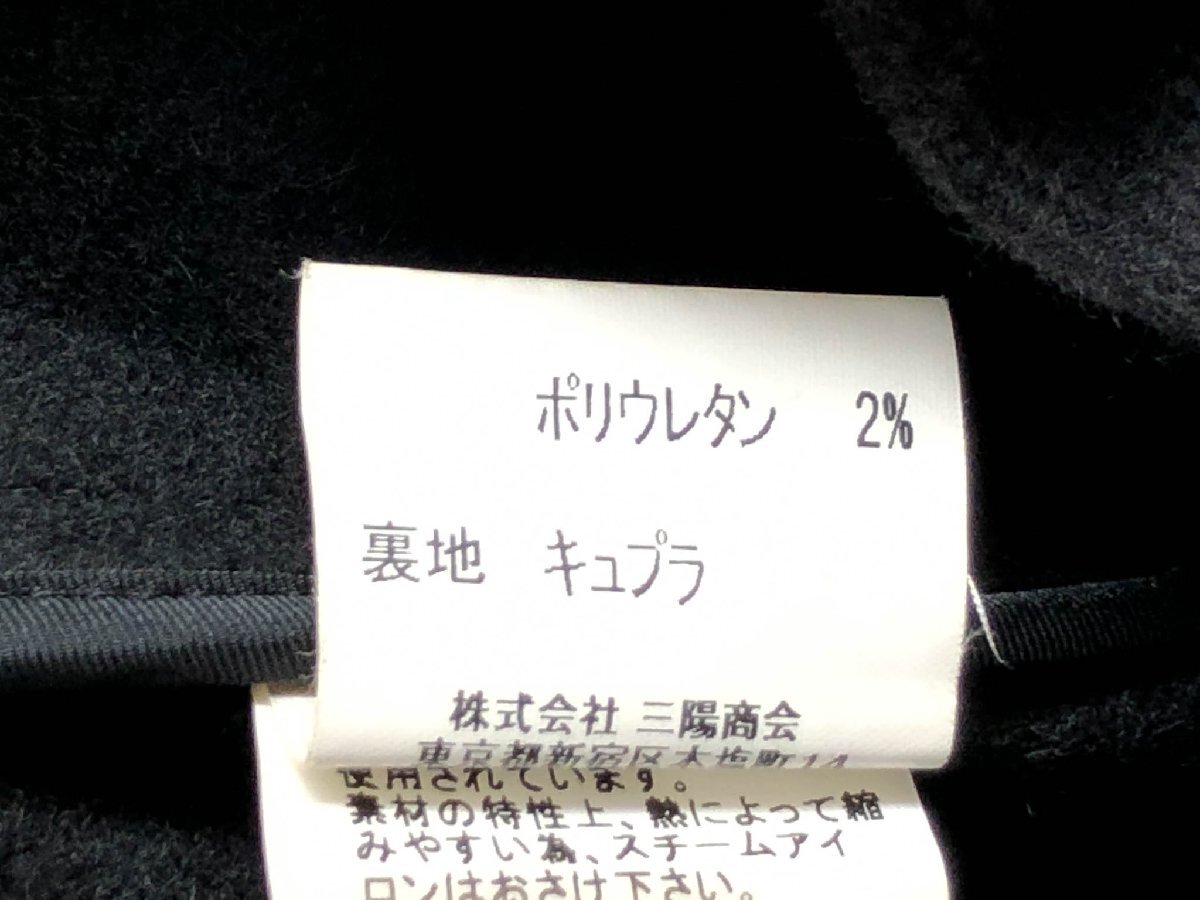 ポリウレタン 2%
裏地 キュプラ
株式会社 三陽商会
東京都新宿区本塩町14
使用されています。
素材の特性上、熱によって縮
みやすい為、スチームアイ
ロンはおさけ下さい。